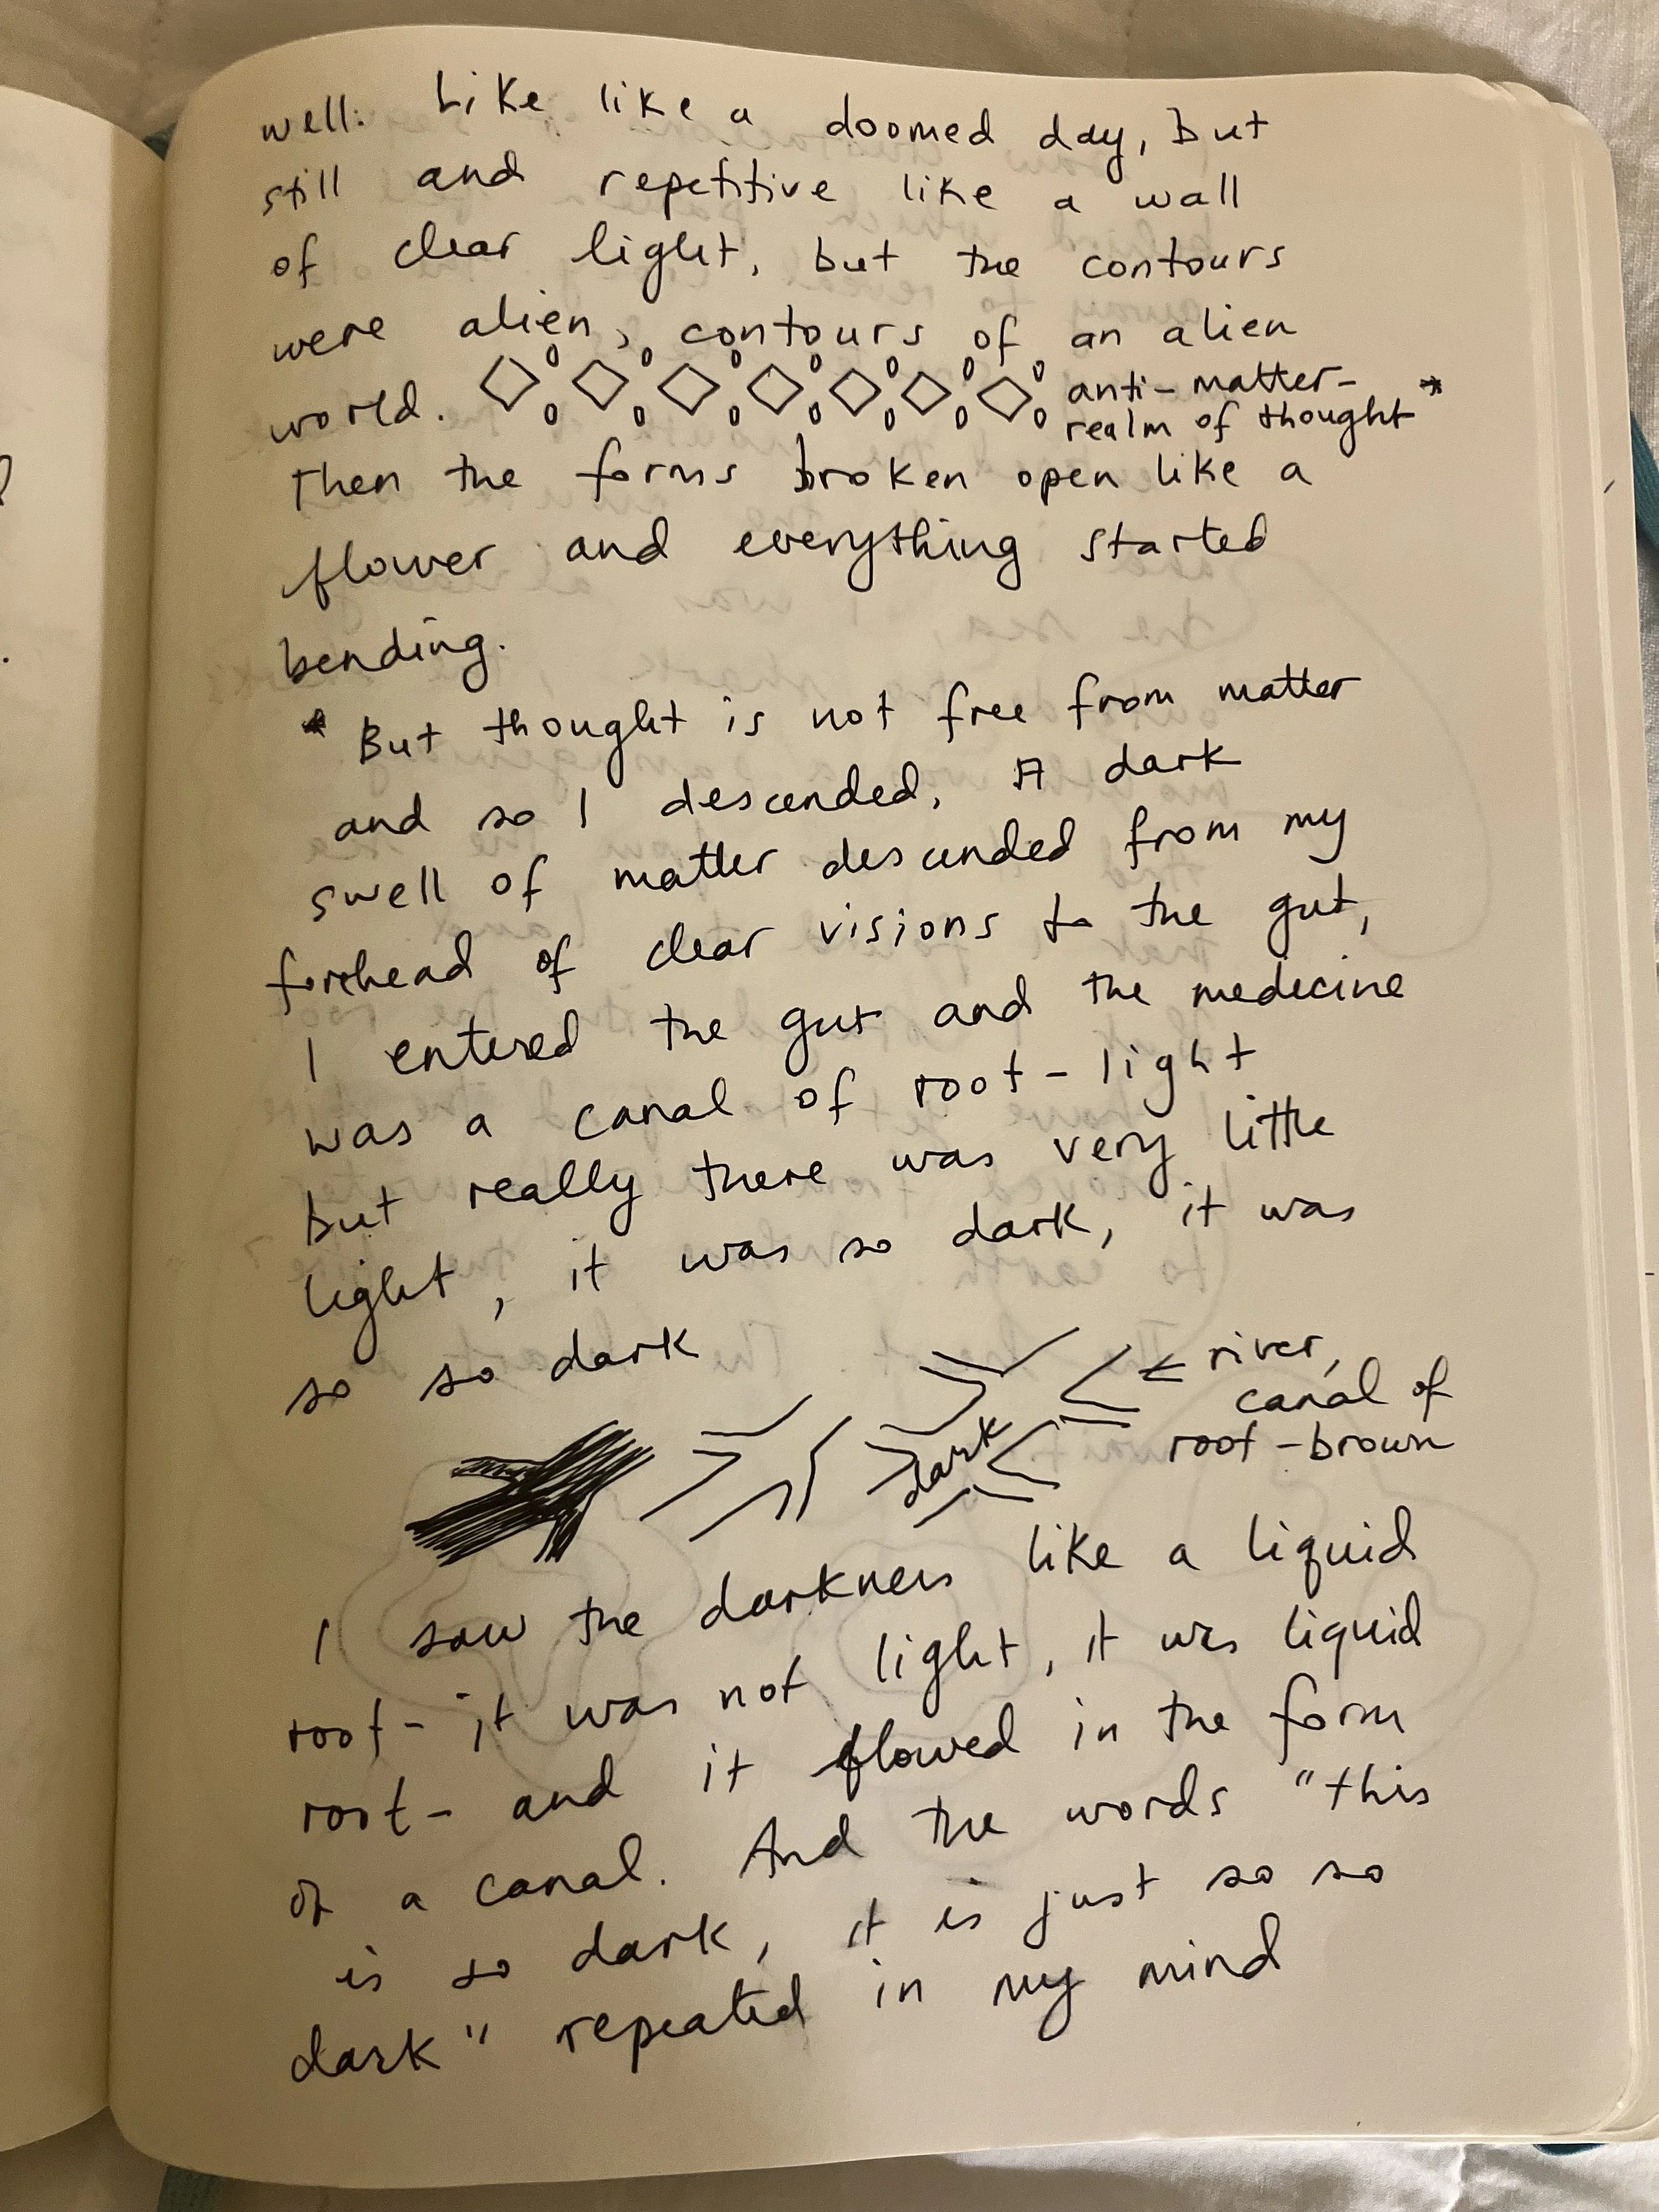 well. Like like a doomed day, but
still and repetitive like a wall
of clear light, but the contours
were alien, contours of an alien
world.
anti-matter-
realm of thought*
Then the forms broken open like a
flower and everything started
bending.
* But thought is not free from matter
and so I descended. A dark
swell of matter descended from my
forehead of clear visions to the gut,
I entered the gut and the medecine
was a canal of root-light
but really there was very little
light, it was so dark, it was
so so dark
← river,
canal of
root-brown
dark
I saw the darkness like a liquid
root- it was not light, it was liquid
root- and it flowed in the form
of a canal. And the words "this
is so dark, it is just so so
dark" repeated in my mind